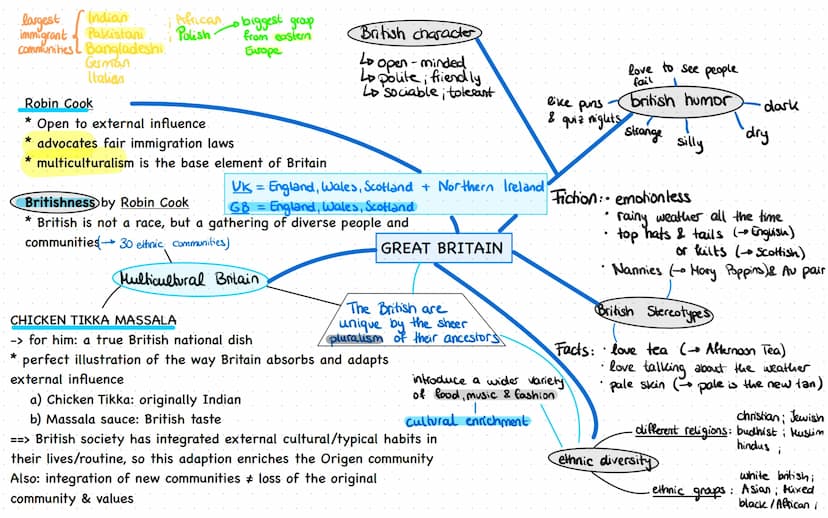 largest
immigrant
communities
Indian
Pakistani
Bangladeshi
German
Italian
; African
Polish
biggest group
from eastern
Europe
British character
↳ open-minded
↳ polite; friendly
↳ sociable; tolerant
love to see people
fail
like puns
& quiz nights
british humor
strange
silly
dry
dark
Robin Cook
* Open to external influence
* advocates fair immigration laws
* multiculturalism is the base element of Britain
UK = England, Wales, Scotland + Northern Ireland
GB = England, Wales, Scotland
Britishness by Robin Cook
* British is not a race, but a gathering of diverse people and
communities (→ 30 ethnic communities)
GREAT BRITAIN
Fiction: · emotionless
· rainy weather all the time
· top hats & tails (→ English)
or kilts (→ Scottish)
· Nannies (→ Mary Poppins) & Au pair
British Stereotypes
Multicultural Britain
The British are
unique by the sheer
pluralism of their ancestors
Facts: · love tea (→ Afternoon Tea)
· love talking about the weather
· pale skin (→ pale is the new tan)
CHICKEN TIKKA MASSALA
-> for him: a true British national dish
* perfect illustration of the way Britain absorbs and adapts
external influence
a) Chicken Tikka: originally Indian
b) Massala sauce: British taste
==> British society has integrated external cultural/typical habits in
their lives/routine, so this adaption enriches the Origen community
Also: integration of new communities ≠ loss of the original
community & values
introduce a wider variety
of food, music & fashion
cultural enrichment
ethnic diversity
different religions:
christian; Jewish
budhist; Muslim
hindus;
ethnic groups:
white british;
Asian; Mixed
black/African;